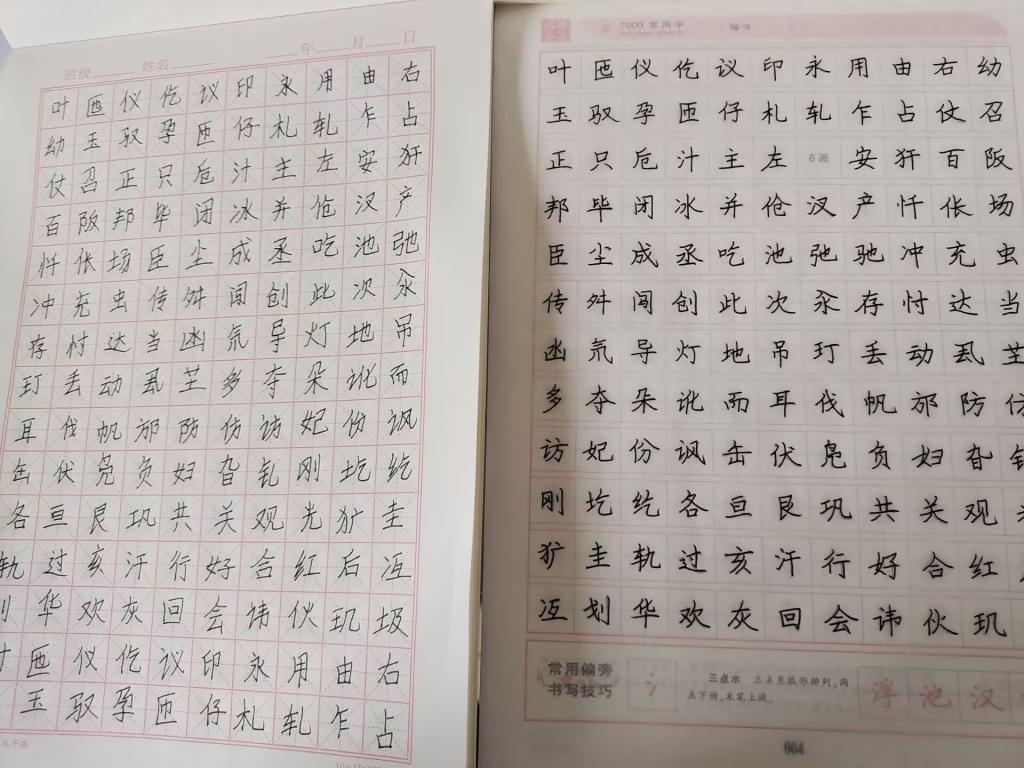 班级 姓名 年 月 日
叶 匜 仪 仡 议 印 永 用 由 右
幼 玉 驭 孕 匝 仔 札 轧 乍 占
仗 召 正 只 卮 汁 主 左 安 犴
百 阪 邦 毕 闭 冰 并 伧 汊 产
忏 伥 场 臣 尘 成 丞 吃 池 弛
冲 充 虫 传 舛 闯 创 此 次 汆
存 忖 达 当 凼 氘 导 灯 地 吊
玎 丢 动 厾 芏 多 夺 朵 讹 而
耳 伐 帆 邡 防 仿 访 妃 份 讽
缶 伏 凫 负 妇 旮 钆 刚 圪 纥
各 亘 艮 巩 共 关 观 光 犷 圭
轨 过 亥 汗 行 好 合 红 后 冱
划 华 欢 灰 回 会 讳 伙 玑 圾
叶 匜 仪 仡 议 印 永 用 由 右
玉 驭 孕 匝 仔 札 轧 乍 占
7000 常用字 楷书
叶 匜 仪 仡 议 印 永 用 由 右 幼
玉 驭 孕 匝 仔 札 轧 乍 占 仗 召
正 只 卮 汁 主 左 6画 安 犴 百 阪
邦 毕 闭 冰 并 伧 汊 产 忏 伥 场
臣 尘 成 丞 吃 池 弛 驰 冲 充 虫
传 舛 闯 创 此 次 汆 存 忖 达 当
凼 氘 导 灯 地 吊 玎 丢 动 厾 芏
多 夺 朵 讹 而 耳 伐 帆 邡 防 仿
访 妃 份 讽 缶 伏 凫 负 妇 旮 钆
刚 圪 纥 各 亘 艮 巩 共 关 观
犷 圭 轨 过 亥 汗 行 好 合 红
冱 划 华 欢 灰 回 会 讳 伙 玑
常用偏旁
书写技巧
氵
三点水 三点呈弧形排列,两
点下俯,末笔上挑。
浮 池 汉
004